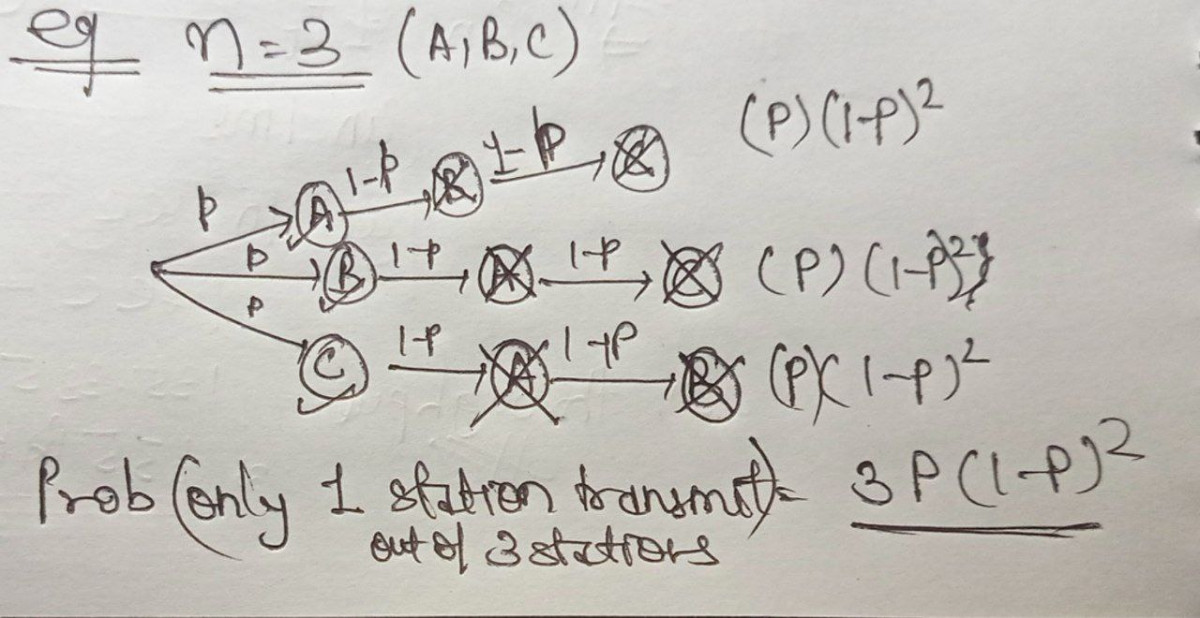 eg n=3 (A,B,C)
p A 1-p B 1-p C (P)(1-P)²
p B 1-p A 1-p C (P)(1-P)²}
p C 1-p A 1-p B (P)(1-P)²
Prob (only 1 station transmit) = 3P(1-P)²
out of 3 stations